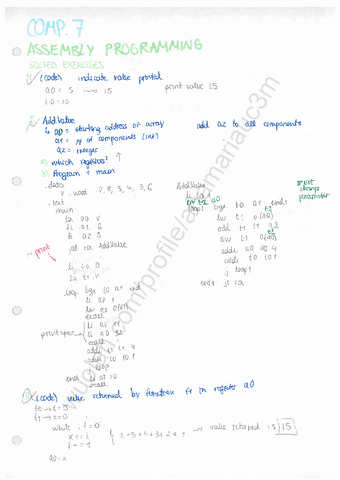 COMP. 7
ASSEMBLY PROGRAMMING
SOLVED EXERCISES
(code) indicate value printed
print value 15
AddValue
a0 = starting address of array
add a2 to all components
a1 = nº of components (int)
a2 = integer
a) which registers?
b) Program + main
.data
v: .word 7, 8, 3, 4, 5, 6
.text
main
la a0 v
li a1 6
li a2 5
jal ra AddValue
~ print
li t0 0
la t1 v
loop bge t0 a1 end
li a7 1
lw a0 0(t1)
ecall
print space
li a7 11
li a0 32
ecall
addi t1 t1 4
addi t0 t0 1
j loop
end: li a7 10
ecall
AddValue
li t0 0
mv t2 a0
loop1 bge t0 a1 end1
lw t1 0(a0)
add t1 t1 a2
sw t1 0(a0)
addi a0 a0 4
addi t0 t0 1
j loop1
end1 jr ra
not change parameter
(code) value returned by function f1 in register a0
t0 → i = 5
t1 → x = 0
while i != 0
x += i
i -= 1
x = 5 + 4 + 3 + 2 + 1 → value returned is 15
a0 = x
wuolah.com/profile/anamariauc3m